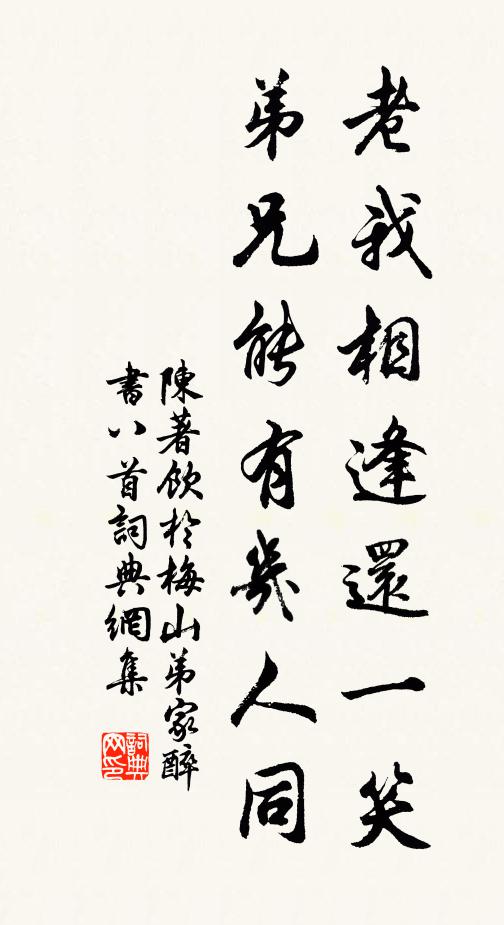 老我相逢還一笑
弟兄能有幾人同
陳著飲於梅山弟家醉
書八首詞典網集
詞典
网印